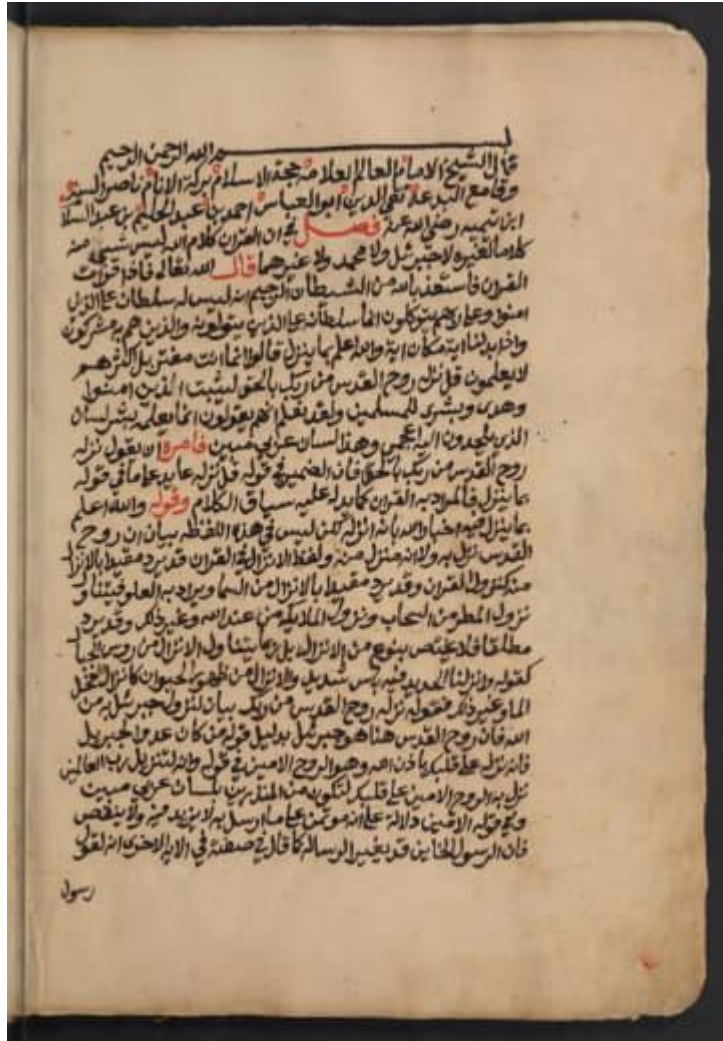 بسم الله الرحمن الرحيم
قال الشيخ الامام العالم العلامة حجة الاسلام بركة الانام ناصر السنة
وقامع البدعة تقي الدين ابو العباس احمد بن عبد الحليم بن عبد السلام
ابن تيميه رضي الله عنه فصل في ان القران كلام الله ليس شيء منه
كلاما لغيره لا جبرئيل ولا محمد ولا غيرهما قال الله تعالى فاذا قرات
القران فاستعذ بالله من الشيطان الرجيم انه ليس له سلطان على الذين
امنوا وعلى ربهم يتوكلون انما سلطانه على الذين يتولونه والذين هم به مشركون
واذا بدلنا اية مكان اية والله اعلم بما ينزل قالوا انما انت مفتر بل اكثرهم
لا يعلمون قل نزله روح القدس من ربك بالحق ليثبت الذين امنوا
وهدى وبشرى للمسلمين ولقد نعلم انهم يقولون انما يعلمه بشر لسان
الذي يلحدون اليه اعجمي وهذا لسان عربي مبين فامره ان يقول نزله
روح القدس من ربك بالحق فان الضمير في قوله قل نزله عايد على ما في قوله
بما ينزل فالمراد به القران كما يدل عليه سياق الكلام وقوله والله اعلم
بما ينزل فيه اخبار الله بانه انزله لكن ليس في هذه اللفظه بيان ان روح
القدس نزل به ولا انه منزل منه ولفظ الانزال في القران قد يرد مقيدا بالانزال
منه كنزول القران وقد يرد مقيدا بالانزال من السما ويراد به العلو فيتناول
نزول المطر من السحاب ونزول الملايكة من عند الله وغير ذلك وقد يرد
مطلقا فلا يختص بنوع من الانزال بل ربما يتناول الانزال من روس الجبال
كقوله وانزلنا الحديد فيه باس شديد والانزال من ظهور الحيوان كانزال الفحل
الما وغير ذلك فقوله نزله روح القدس من ربك بيان لنزول جبرئيل به من
الله فان روح القدس هنا هو جبرئيل بدليل قوله من كان عدوا لجبريل
فانه نزله على قلبك باذن الله وهو الروح الامين في قوله وانه لتنزيل رب العالمين
نزل به الروح الامين على قلبك لتكون من المنذرين بلسان عربي مبين
وفي قوله الامين دلالة على انه موتمن على ما ارسل به لا يزيد فيه ولا ينقص
فان الرسول الخاين قد يغير الرساله كما قال في صفته في الايه الاخرى انه لقول
رسول